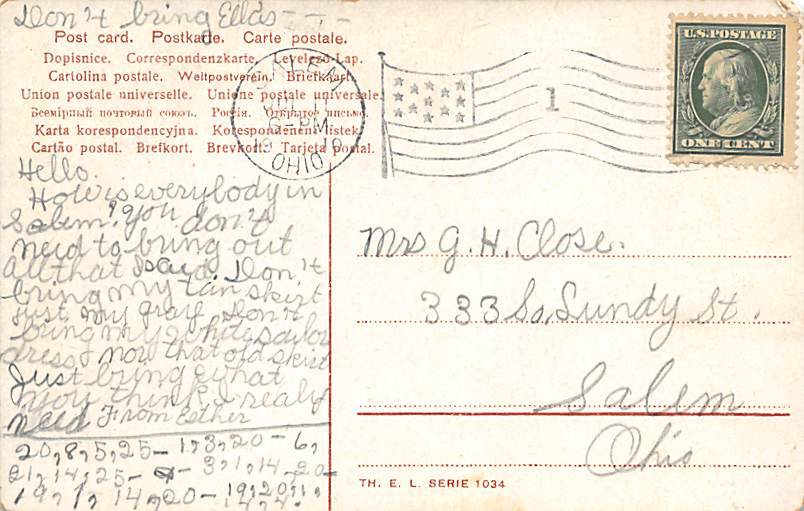 Don't bring Ellas - - -
Post card. Postkarte. Carte postale.
Dopisnice. Correspondenzkarte. Levelező-Lap.
Cartolina postale. Weltpostverein. Briefkaart.
Union postale universelle. Unione postale universale
Всемірный почтовый союзъ. Россія. Открытое письмо.
Karta korespondencyjna. Korespondenčni listek.
Cartão postal. Brefkort. Brevkort. Tarjeta postal.
SALEM
JUL 11
6-PM
19
OHIO
1
U.S. POSTAGE
ONE CENT
Hello.
How is everybody in
Salem? you don't
need to bring out
all that I said. Don't
bring my tan skirt
just my gray. Don't
bring my white sailor
dress & not that old skirt
Just bring what
you think I realy
need From Esther
20,8,5,25 - 1,3,20 - 6,
21,14,25 - 3,1,14 - 20 -
19,1,14,20 - 19,20,1,
Mrs G. H. Close.
333 So, Lundy St.
Salem
Ohio
TH. E. L. SERIE 1034